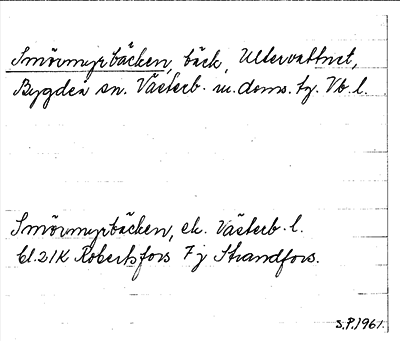 Smörmyrbäcken, bäck, Ultervattnet,
Bygdeå sn. Västerb. m. doms. fg. Vb. l.
Smörmyrbäcken, ek. Västerb. l.
bl. 21K Robertsfors 7j Strandfors.
S.P.1961.